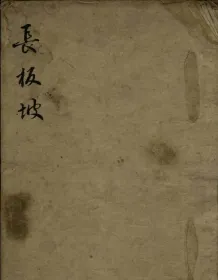 長板坡